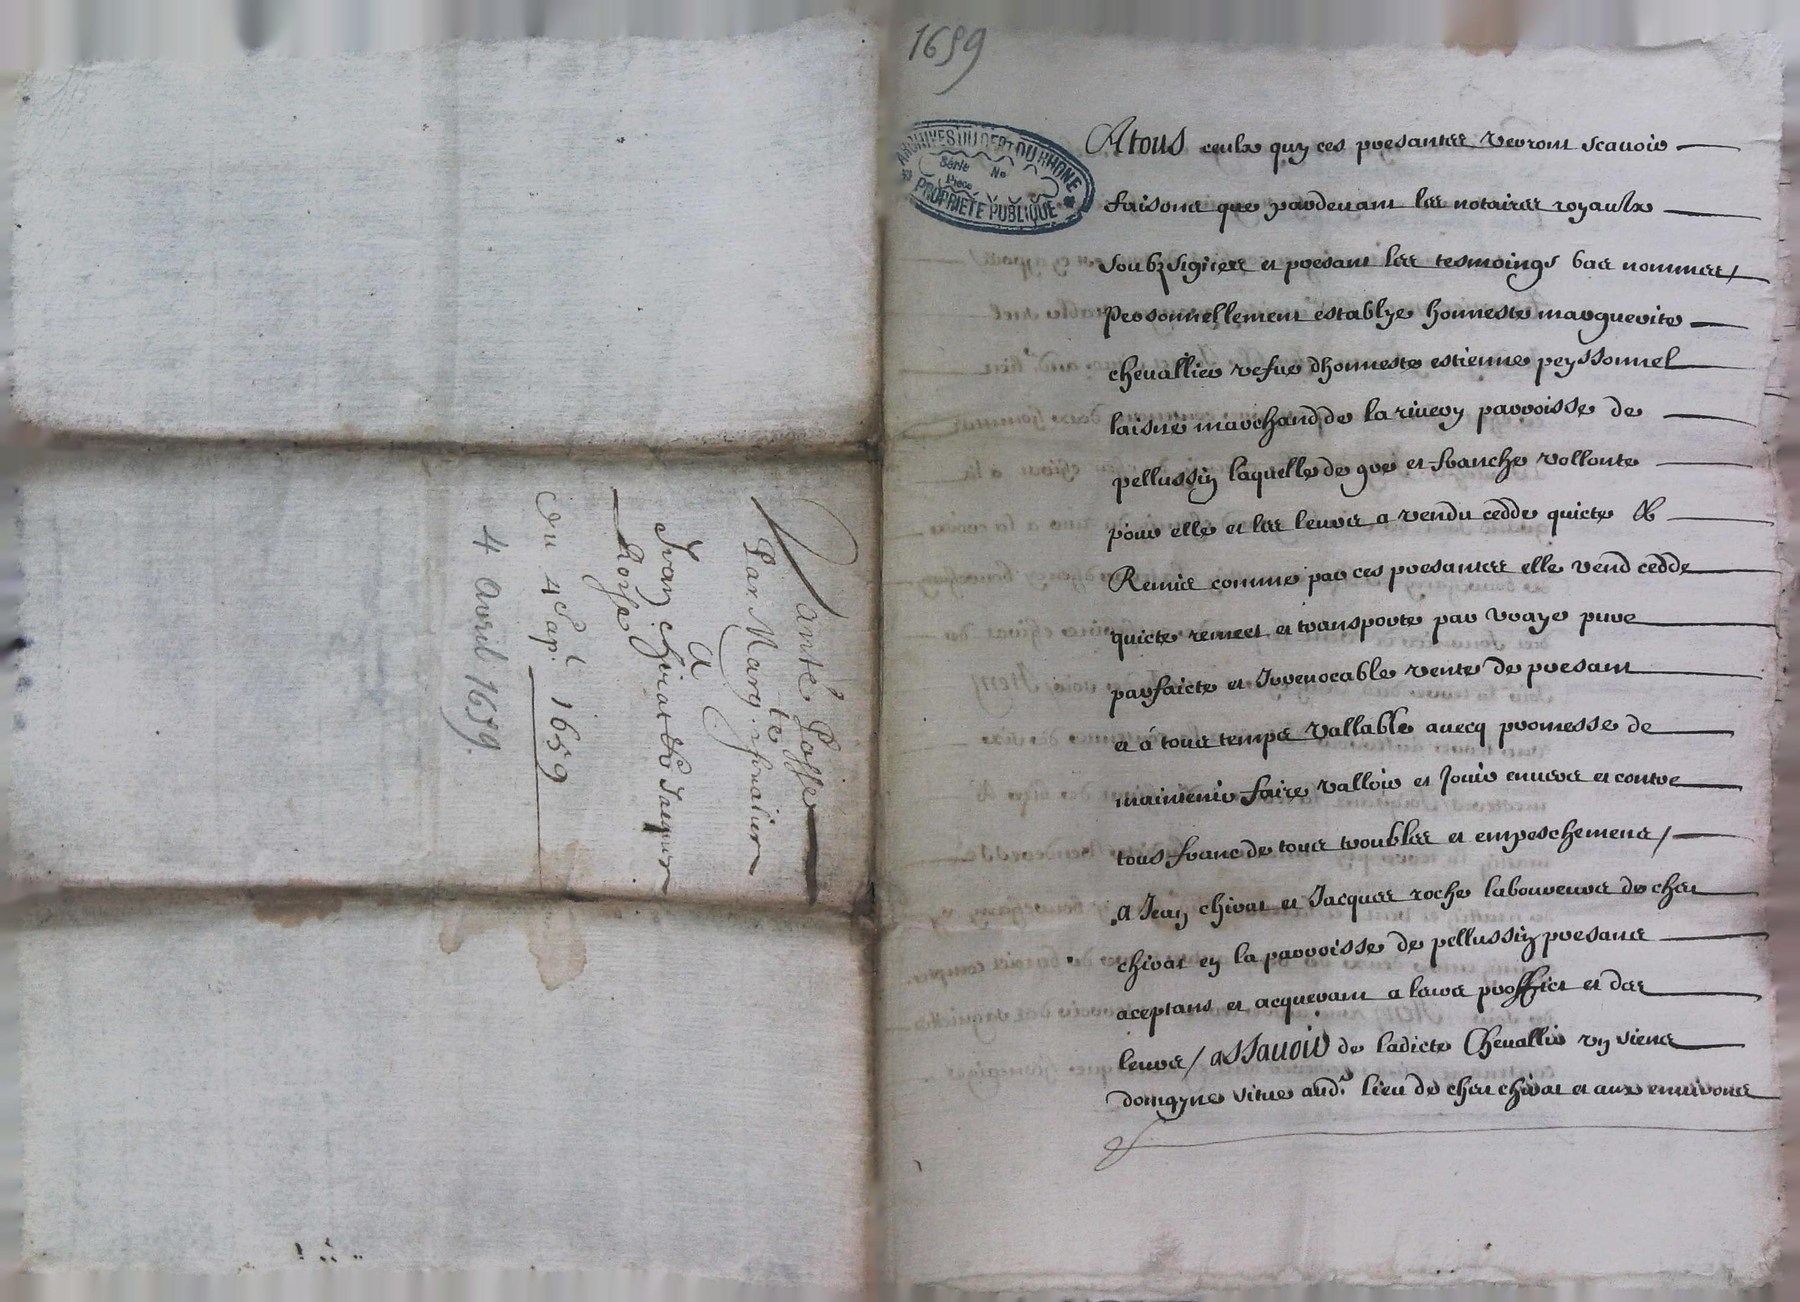 Vante Passee
Par Marg.te Chivalier
A
Jean Chirat & Jacques
Roche
Du 4
1659
4 avril 1659.
1659
ARCHIVES DU DEPT DU RHONE
Série No
Pièce
PROPRIÉTÉ PUBLIQUE
A tous ceulx quy ces presantes verront scavoir
faisons que pardevant les notaires royaulx
soubzsignes et presant les tesmoings bas nommes /
Personnellement establye honneste marguerite
chevallier vefve dhonneste estienne peyssonnel
laisne marchand de la rivery parroisse de
pellussin laquelle de gre et franche vollonte
pour elle et les leurs a vendu cedde quicte &
Remis comme par ces presantes elle vend cedde
quicte remect et transporte par vraye pure
parfaicte et Irrevocable vente de presant
et á tous temps vallable avecq promesse de
maintenir faire valloir et Jouir envers et contre
tous franc de tous troubles et empeschemens /
a Jean chirat et Jacques roche laboureurs de chez
chirat en la parroisse de pellussin presans
aceptans et acquerant a leurs proffict et des
leurs / assavoir de ladicte Chevallir un siens
domayne situe aud.t lieu de chez chirat et aux environs